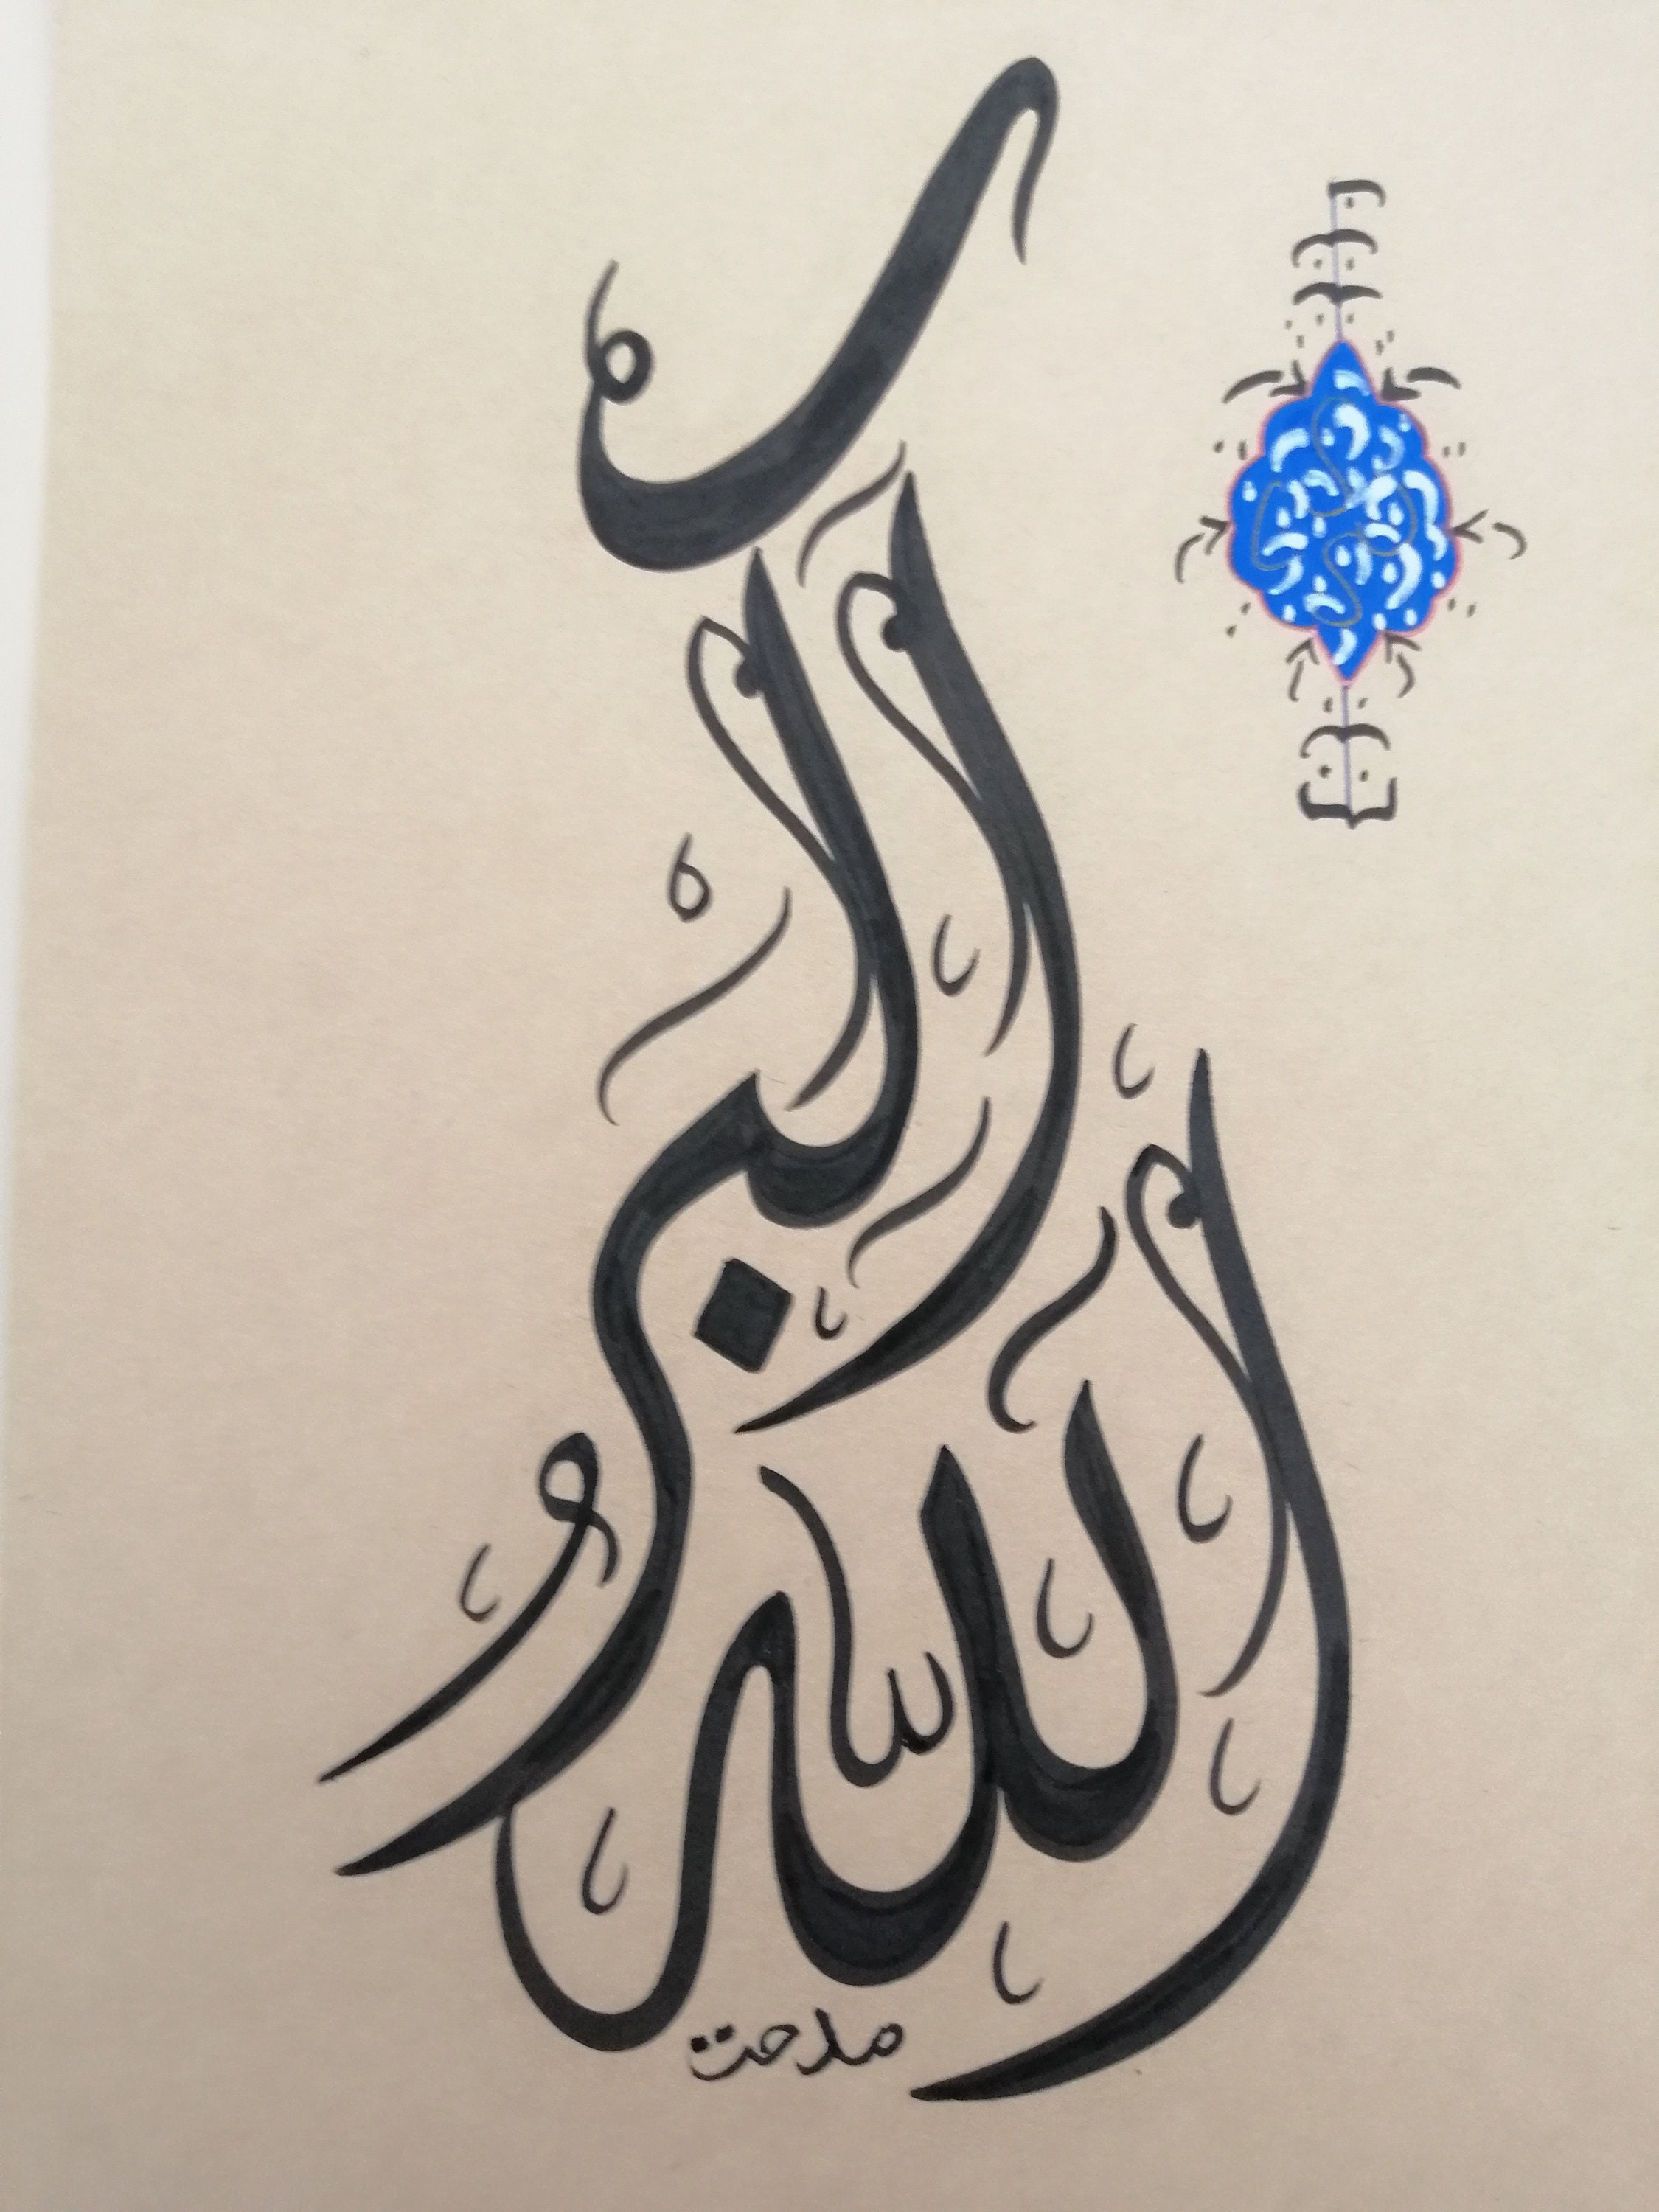 الله أكبر
مدحت